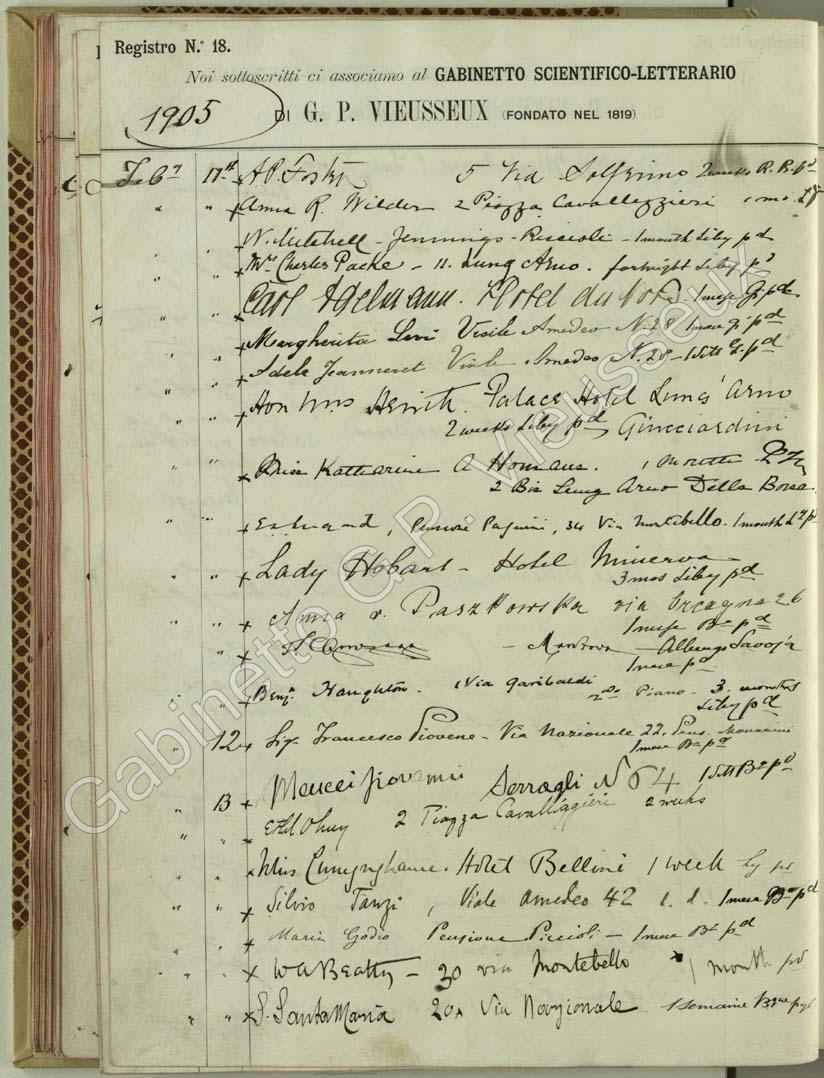 Registro N.° 18.
Noi sottoscritti ci associamo al GABINETTO SCIENTIFICO-LETTERARIO
1905 DI G. P. VIEUSSEUX (FONDATO NEL 1819)
5 Via Solferino 2 weeks R. R. pd
" " x Anna R. Wilder 2 Piazza Cavalleggieri 1 mo.
" " W. Mitchell - Jennings-Riccioli - 1 month Liby pd
" " x Mrs Charles Packe - 11. Lung Arno. fortnight Liby pd
x Carl Hotel du Nord 1 mese G. pd
" " x Margherita Levi Viale Amedeo N. 28 1 mese G. pd
" " x Adele Jeanneret Viale Amedeo N. 28 - 1 Sett G. pd
" " x Hon Mrs Palace Hotel Lung' Arno
2 weeks Liby pd Guicciardini
" " x Miss Katharine A Homans. 1 month
2 Bis Lung Arno Della Borsa.
" " x 34 Via Montebello. 1 month
" " x Lady Hobart - Hotel Minerva
3 mos Liby pd
" " x Anna v. Paszkowska via Orcagna 26
1 mese Be pd
" " x - Mantova - Albergo Savoja
1 mese pd
" " x Benjn. Haughton. 1 Via Garibaldi 2do Piano - 3. months
Liby pd
" 12 x Sig. Francesco Piovene - Via Nazionale 22. Pens.
1 mese Be pd
" 13 x Meucci Giovanni Serragli No 64 1 Sett Be pd
" " x 2 Piazza Cavalleggieri 2 weeks
" " x Miss Cunynghame. Hotel Bellini 1 week Ly pd
" " x Silvio Tanzi, Viale Amedeo 42 1 mese Be pd
" " x Maria Godio Pensione Piccioli - 1 mese Be pd
" " x WA Beatty - 30 via Montebello 1 month pd
" " x S. Santa Maria 20A Via Nazionale. 1 semaine
Gabinetto G.P. Vieusseux